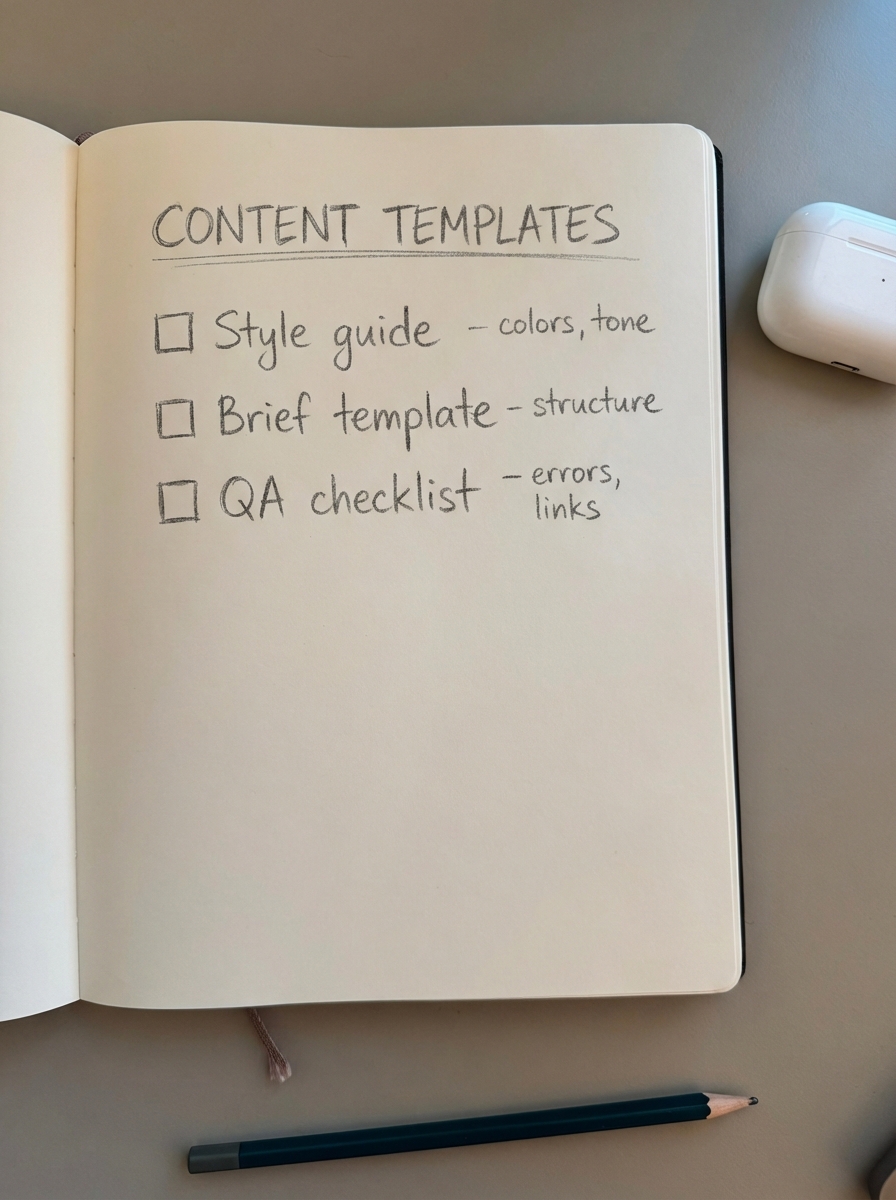 CONTENT TEMPLATES
Style guide – colors, tone
Brief template – structure
QA checklist – errors,
links